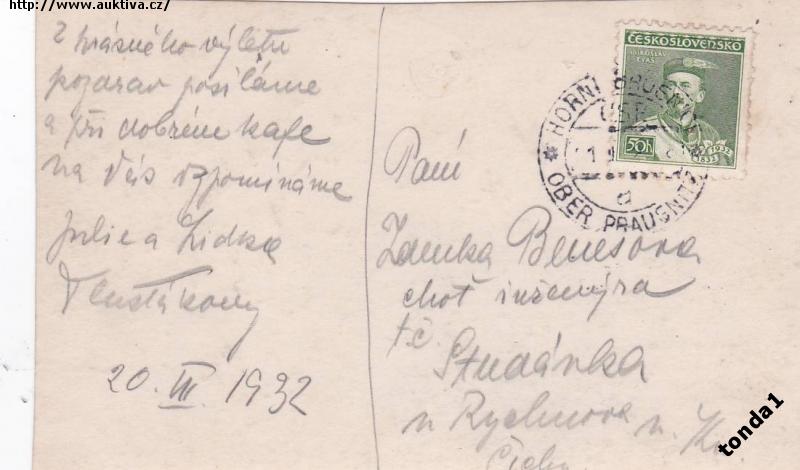 http://www.auktiva.cz/
Z krásného výletu
pozdrav posíláme
a při dobrém kafe
na Vás vzpomínáme
Julie a Zidka
20. III. 1932
ČESKOSLOVENSKO
MIROSLAV TYRŠ
50h
1932
1832
HORNÍ
OBER PRAUSNITZ
a
Paní
Zdenka Benešova
choť inženýra
t. č.
Studánka
u Rychnova n. Kn.
Čechy
tonda1